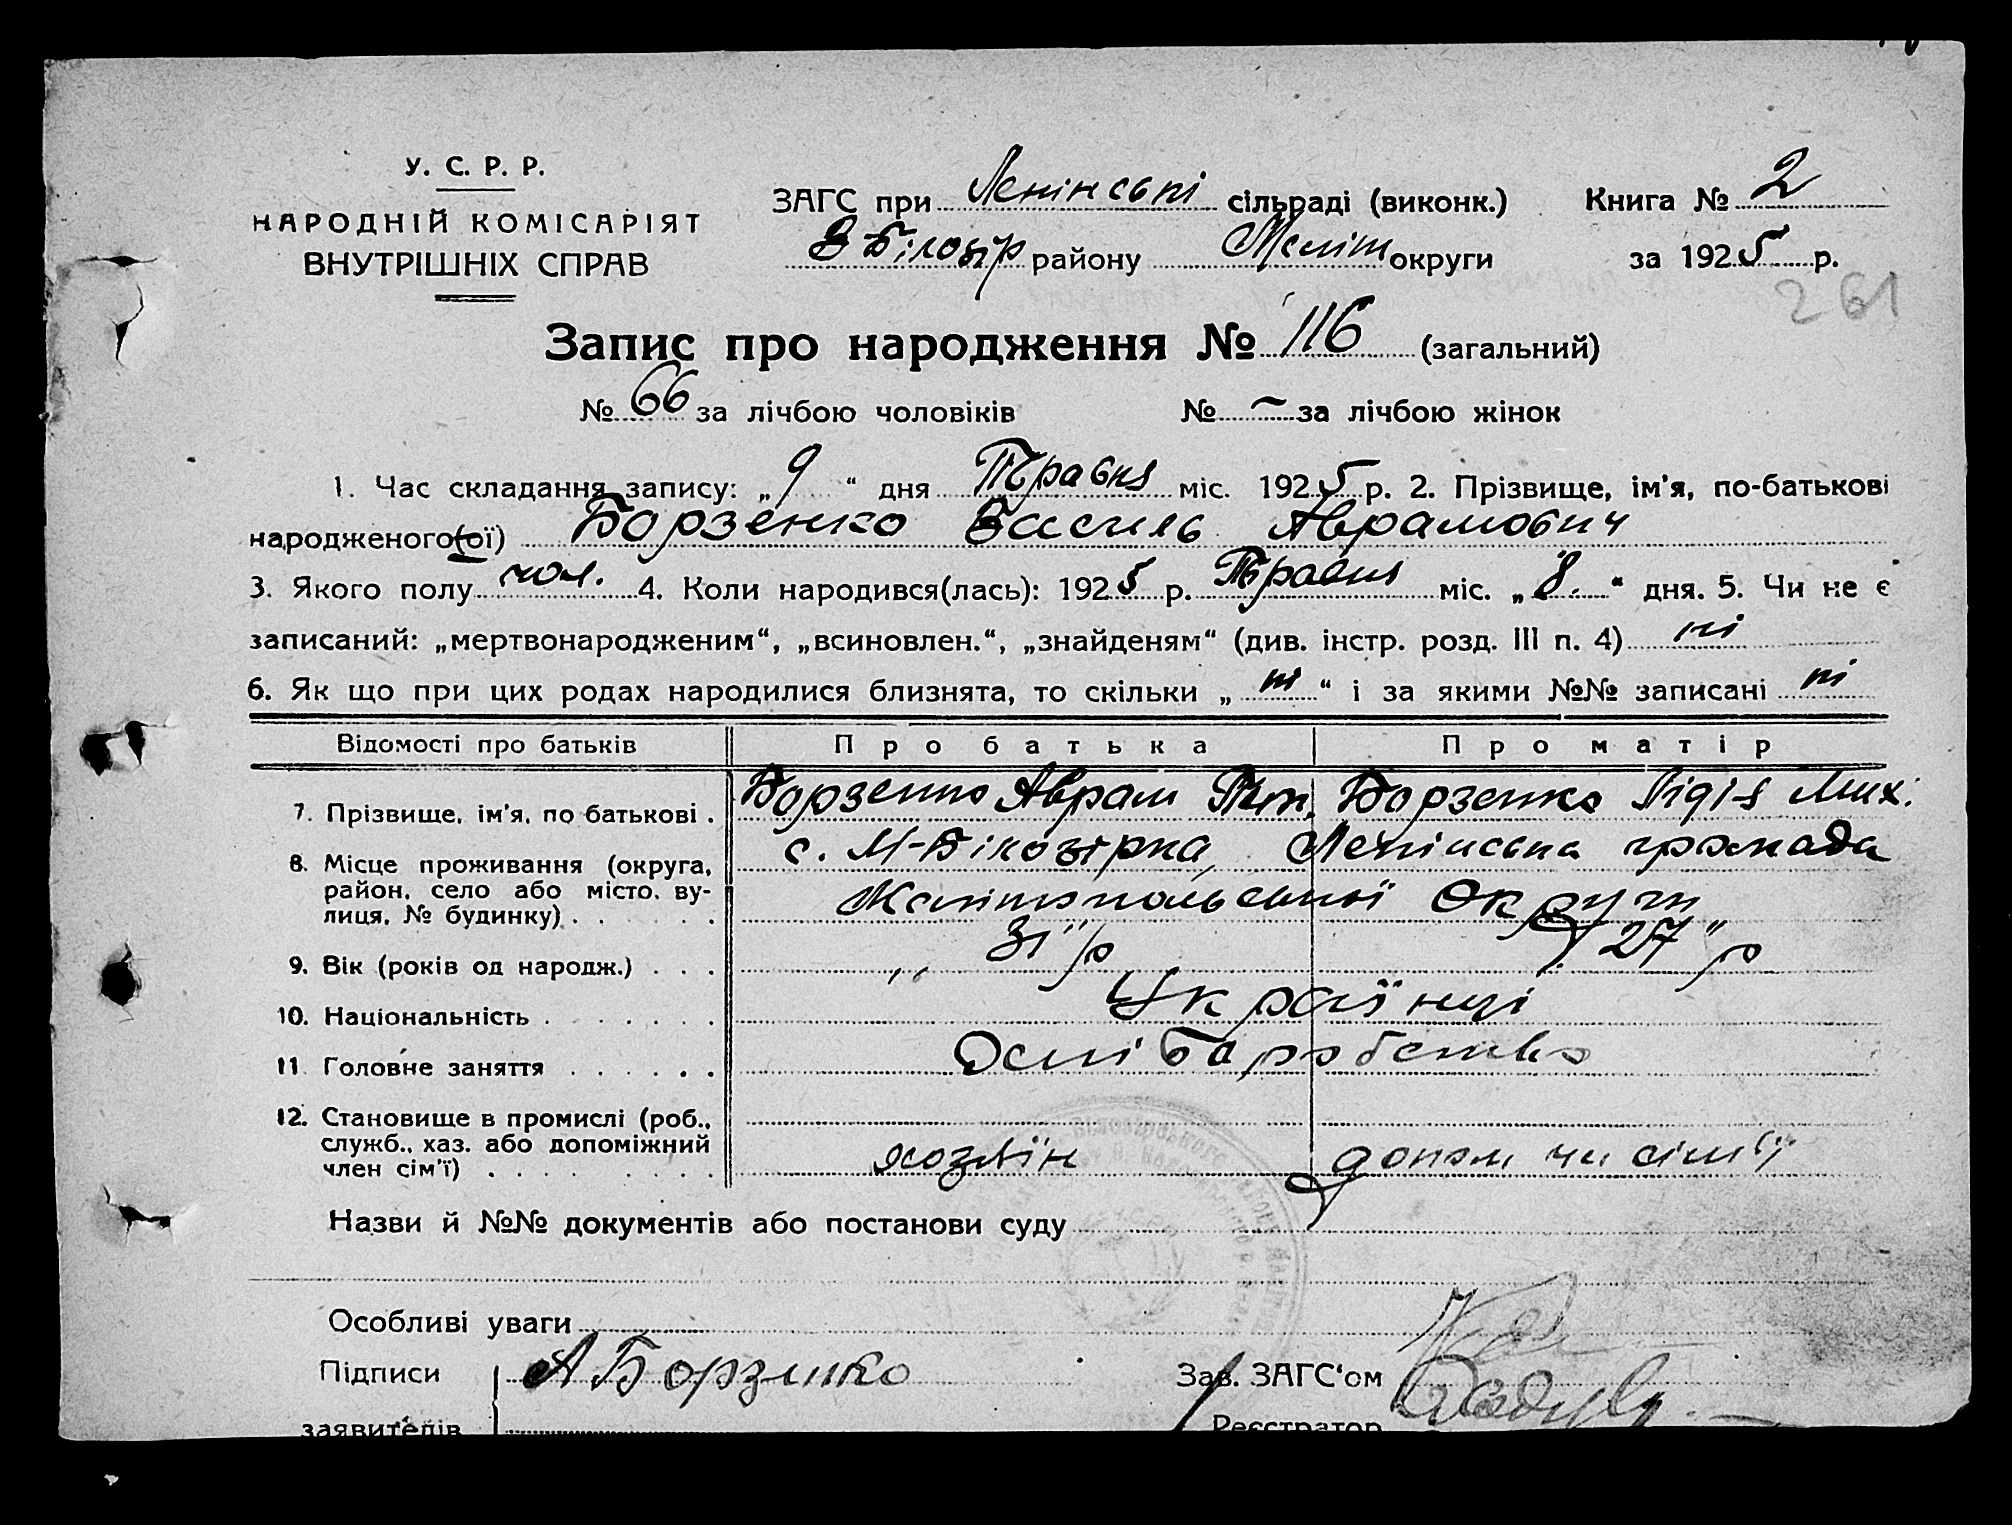 У. С. Р. Р.
НАРОДНІЙ КОМІСАРІЯТ
ВНУТРІШНІХ СПРАВ
ЗАГС при Ленінські сільраді (виконк.) Книга № 2
Білозір району Меліт округи за 1925 р.
261
Запис про народження № 116 (загальний)
№ 66 за лічбою чоловіків № – за лічбою жінок
1. Час складання запису: „9“ дня Травня міс. 1925 р. 2. Прізвище, ім'я, по-батькові
народженого(ої) Борзенко Василь Аврамович
3. Якого полу чол. 4. Коли народився(лась): 1925 р. Травня міс. „8.“ дня. 5. Чи не є
записаний: „мертвонародженим“, „всиновлен.“, „знайденям“ (див. інстр. розд. III п. 4) ні
6. Як що при цих родах народилися близнята, то скільки „ні“ і за якими №№ записані ні
Відомості про батьків Про батька Про матір
7. Прізвище, ім'я, по батькові . Борзенко Аврам Борзенко Лідія Мих.
8. Місце проживання (округа, с. М-Білозірка, Ленінська громада
район, село або місто, ву-
лиця, № будинку) . . . . Мелітопольської Округи
9. Вік (років од народж.) . . . „31" р 27" р
10. Національність . . . . . . . Українці
11 Головне заняття . . . . . . Хліборобство
12. Становище в промислі (роб.,
служб., хаз. або допоміжний
член сім'ї) . . . . . . . хозяїн допом чл сімї
Назви й №№ документів або постанови суду
Особливі уваги
Підписи А Борзенко Зав. ЗАГС'ом
заявителів Реєстратор